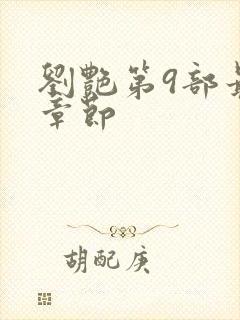 劉艷第9部
章節
胡配庚